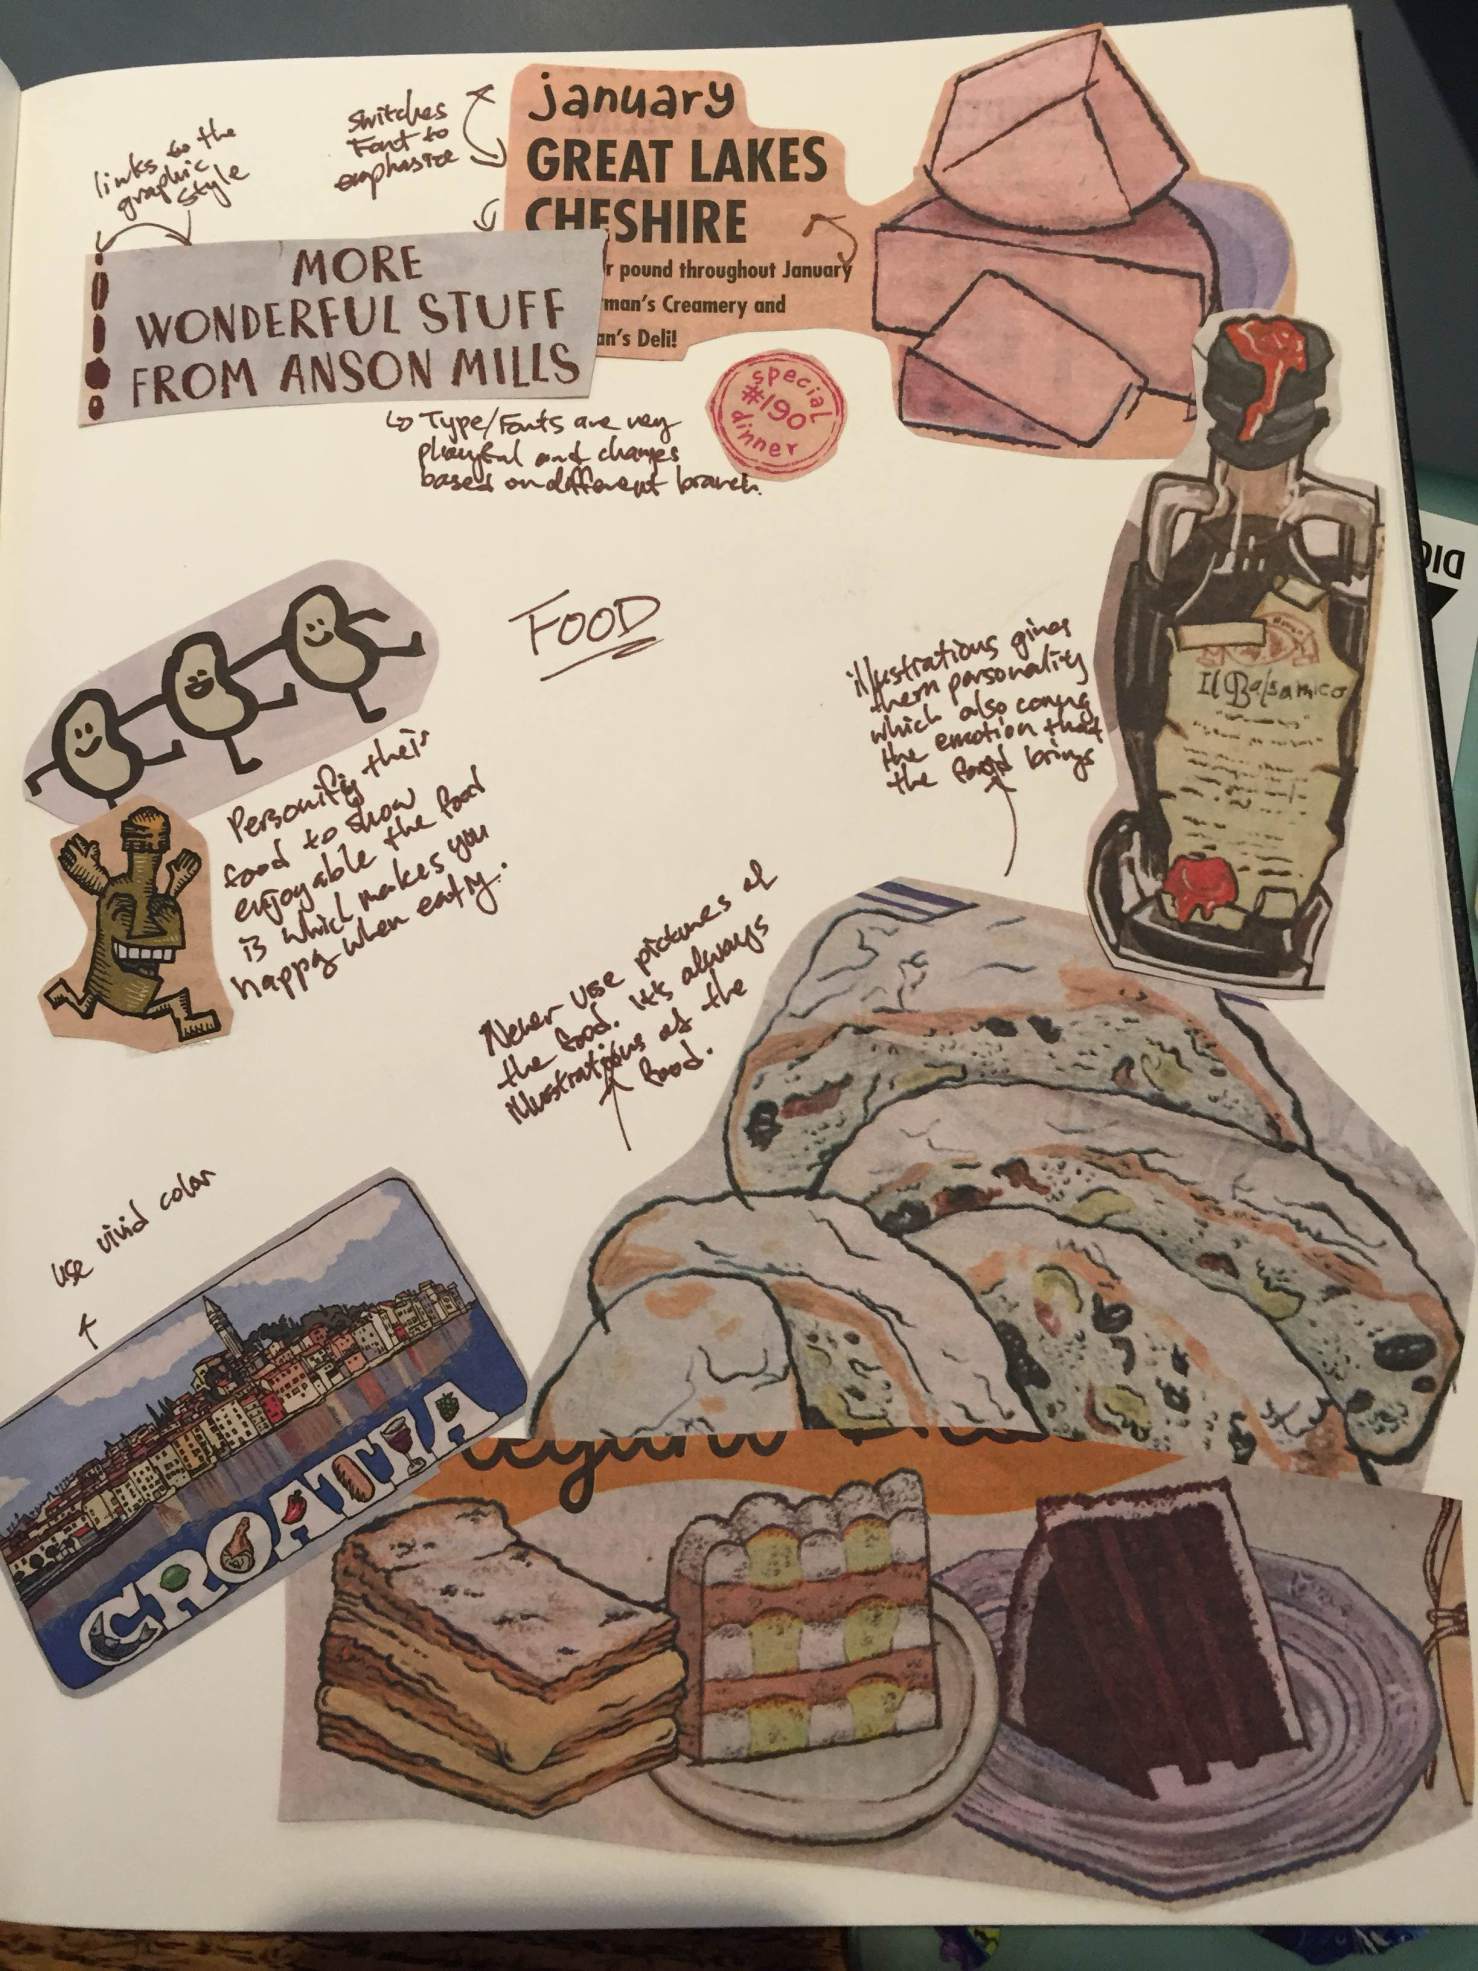 links to the
graphic
style
Switches
Font to
emphasize
january
GREAT LAKES
CHESHIRE
r pound throughout January
rman's Creamery and
an's Deli!
MORE
WONDERFUL STUFF
FROM ANSON MILLS
special
#190
dinner
↳ Type/Fonts are very
playful and changes
based on different branch.
FOOD
DIG
illustrations gives
them personality
which also conveys
the emotion that
the food brings
Il Balsamico
Personify their
food to show
enjoyable the food
is which makes you
happy when eating.
Never use pictures of
the food. It's always
illustrations of the
food.
use vivid color
CROATIA